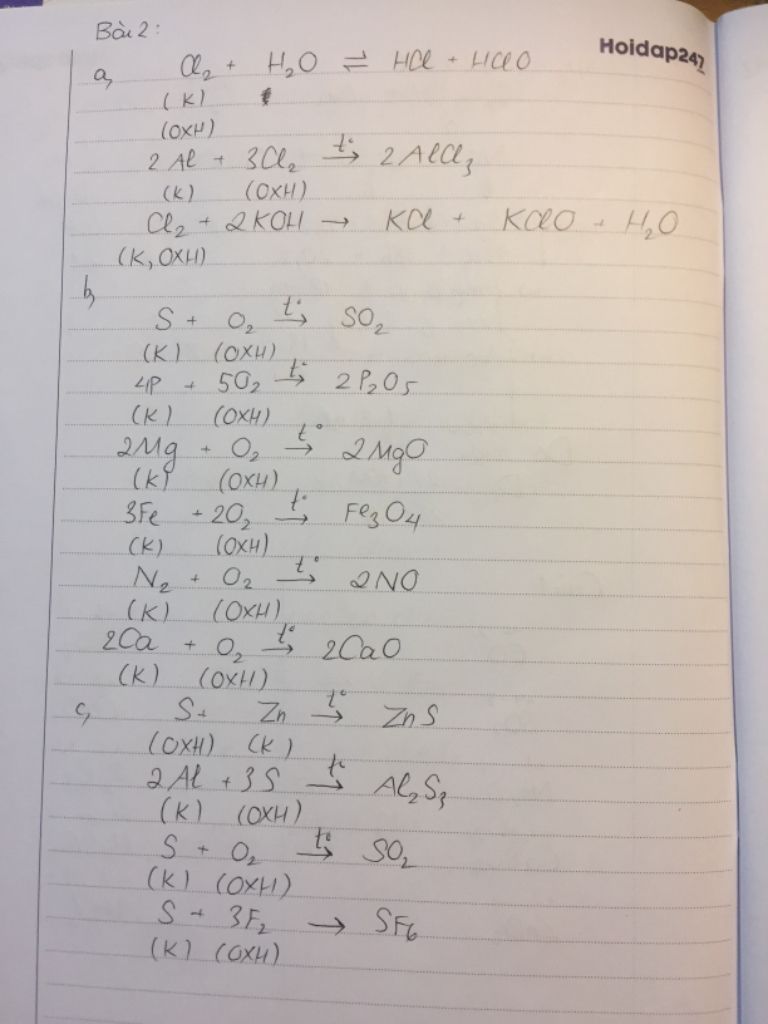 Bài 2:
Hoidap247
a, Cl₂ + H₂O ⇌ HCl + HClO
(K)
(OXH)
2Al + 3Cl₂ t°→ 2AlCl₃
(K) (OXH)
Cl₂ + 2KOH → KCl + KClO + H₂O
(K, OXH)
b,
S + O₂ t°→ SO₂
(K) (OXH)
4P + 5O₂ t°→ 2P₂O₅
(K) (OXH)
2Mg + O₂ t°→ 2MgO
(K) (OXH)
3Fe + 2O₂ t°→ Fe₃O₄
(K) (OXH)
N₂ + O₂ t°→ 2NO
(K) (OXH)
2Ca + O₂ t°→ 2CaO
(K) (OXH)
c, S + Zn t°→ ZnS
(OXH) (K)
2Al + 3S t°→ Al₂S₃
(K) (OXH)
S + O₂ t°→ SO₂
(K) (OXH)
S + 3F₂ → SF₆
(K) (OXH)